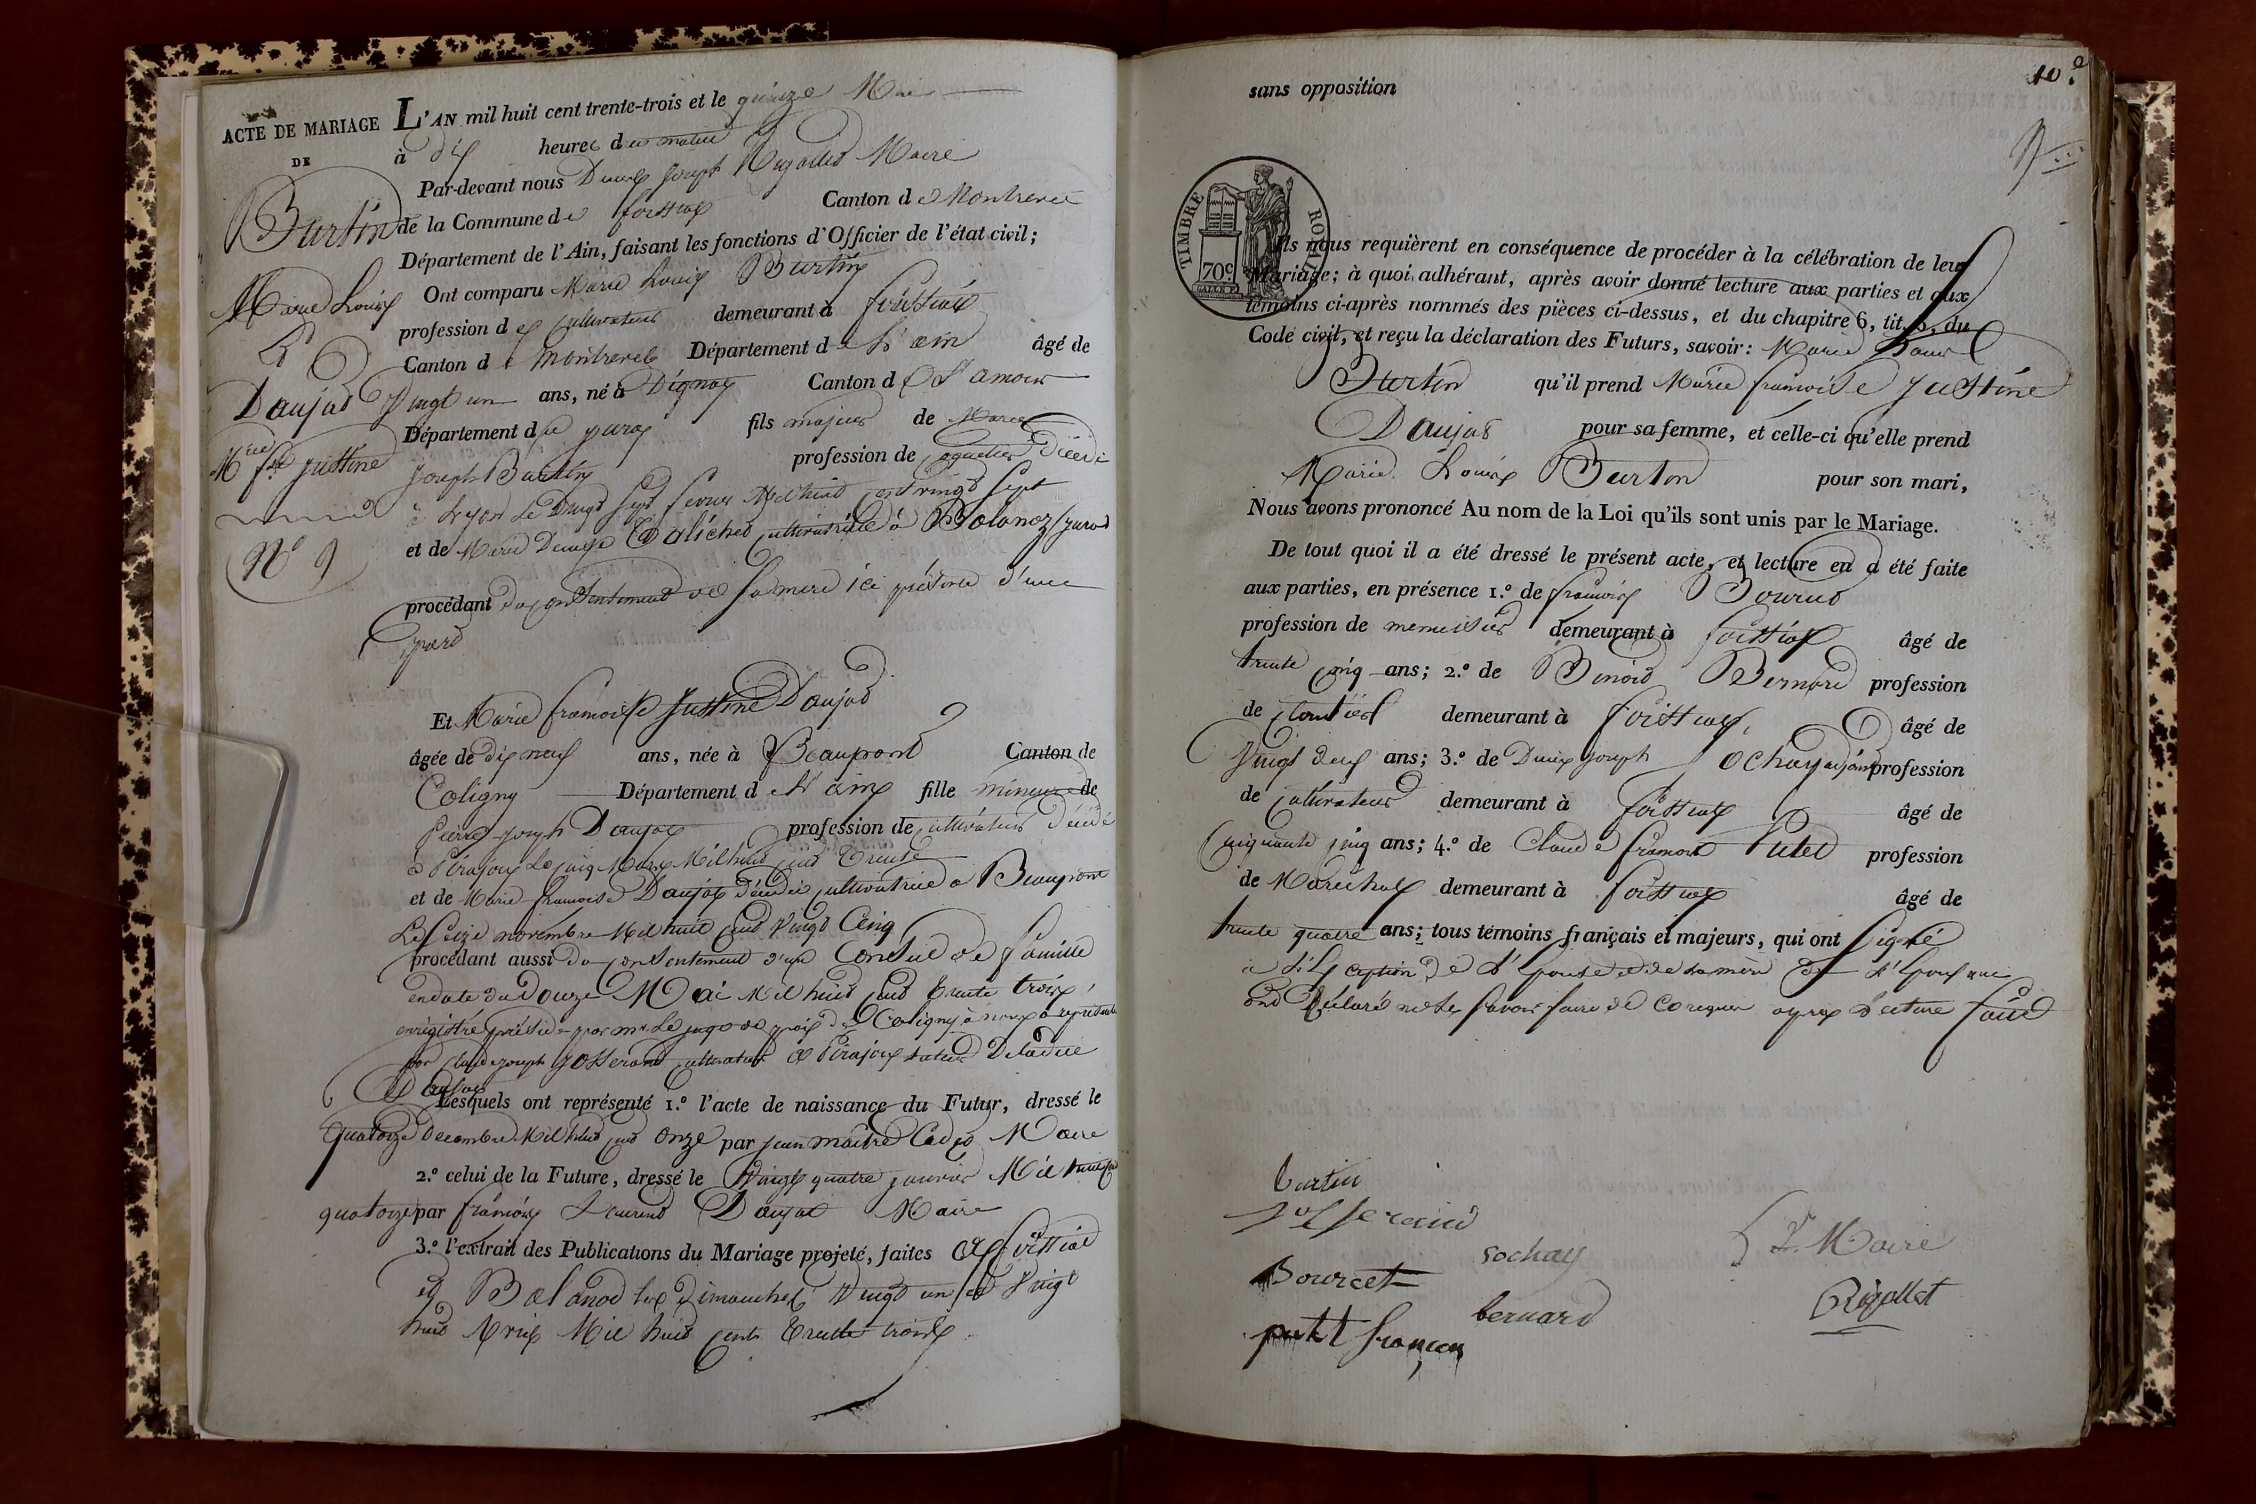 ACTE DE MARIAGE
DE
Burtin
Marie Louis
Et
Daujat
M.rie f.se justine
N.o 9
L'AN mil huit cent trente-trois et le quinze Mai
à dix heures du matin
Par-devant nous Denis joseph Rigollet Maire
de la Commune de foissiat Canton de Montrevel
Département de l'Ain, faisant les fonctions d'Officier de l'état civil;
Ont comparu Marie Louis Burtin
profession de cultivateur demeurant à foissiat
Canton de Montrevel Département de L'ain âgé de
Vingt un ans, né à Digna Canton de St amour
Département du jura fils majeur de Marie
joseph Burtin profession de coquetier décédé
à Lyon Le Vingt sept fevrier Mil huit cent vingt sept
et de Marie Denise cultivatrice à Balanoz (jura)
procédant du consentement de sa mère ici présente d'une
part
Et Marie francoise justine Daujat
âgée de dix neuf ans, née à Beaupont Canton de
Coligny Département de L'ain fille mineure de
Pierre joseph Daujat profession de cultivateur décédé
à Pirajoux Le cinq Mars Mil huit cent Trente
et de Marie francoise Daujat décédée cultivatrice a Beaupont
Le seize novembre Mil huit cent Vingt Cinq
procédant aussi du consentement d'un Conseil de famille
en date du Douze Mai Mil huit cent Trente trois,
enregistré présidé par mr Le juge de paix de Coligny à nous représenté
par claude joseph josserand cultivateur à Pirajoux tuteur De ladite
Daujat
Lesquels ont représenté 1.º l'acte de naissance du Futur, dressé le
quatorze Decembre Mil huit cent onze par jean Maire
2.º celui de la Future, dressé le Vingt quatre janvier Mil huit cent
quatorze par francois Laurent Daujat Maire
3.º l'extrait des Publications du Mariage projeté, faites à foissiat
et Balanod les dimanches Vingt un et Vingt
huit Avril Mil huit cent Trente trois
10.e
sans opposition
TIMBRE ROYAL
70c
Ils nous requièrent en conséquence de procéder à la célébration de leur
Mariage; à quoi adhérant, après avoir donné lecture aux parties et aux
témoins ci-après nommés des pièces ci-dessus, et du chapitre 6, tit. 5, du
Code civil, et reçu la déclaration des Futurs, savoir: Marie Louis
Burtin qu'il prend Marie francoise justine
Daujat pour sa femme, et celle-ci qu'elle prend
Marie Louis Burtin pour son mari,
Nous avons prononcé Au nom de la Loi qu'ils sont unis par le Mariage.
De tout quoi il a été dressé le présent acte, et lecture en a été faite
aux parties, en présence 1.º de francois Bourcet
profession de menuisier demeurant à foissiat âgé de
trente cinq ans; 2.º de Benoit Bernard profession
de cloutier demeurant à foissiat, âgé de
Vingt deux ans; 3.º de Denis joseph Ochay adjoint profession
de cultivateur demeurant à foissiat âgé de
Cinquante cinq ans; 4.º de Claude francois Putet profession
de Maréchal demeurant à foissiat âgé de
trente quatre ans; tous témoins français et majeurs, qui ont signé
à L'Exception de L'épouse et de la mère de L'époux qui
ont Déclaré ne le savoir faire de ce requis après Lecture faite
burtin
josserand
sochay
Bourcet
bernard
putet françois
Le Maire
Rigollet